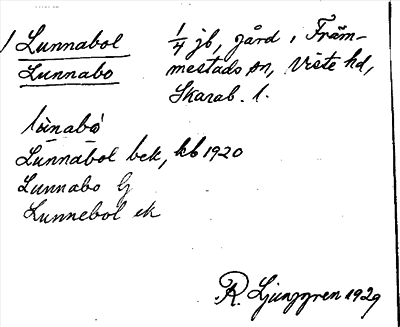 1 Lunnabol 1/4 jb, gård i Främ-
Lunnabo mestads sn, Viste hd,
Skarab. l.
lùnabó
Lunnabol bek, kb 1920
Lunnabo G
Lunnebol ek
R. Ljunggren 1929